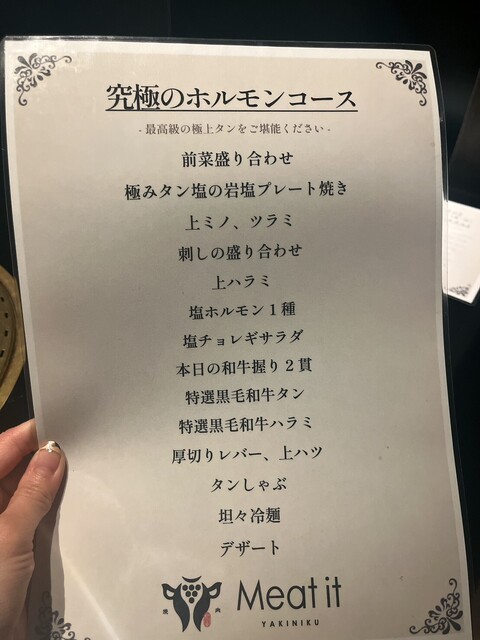 究極のホルモンコース
- 最高級の極上タンをご堪能ください -
前菜盛り合わせ
極みタン塩の岩塩プレート焼き
上ミノ、ツラミ
刺しの盛り合わせ
上ハラミ
塩ホルモン１種
塩チョレギサラダ
本日の和牛握り２貫
特選黒毛和牛タン
特選黒毛和牛ハラミ
厚切りレバー、上ハツ
タンしゃぶ
坦々冷麺
デザート
焼 肉 Meat it
YAKINIKU